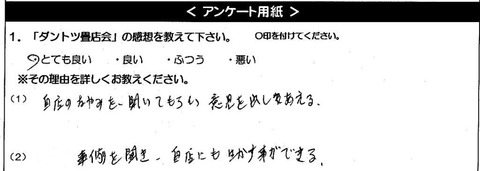 ＜ アンケート用紙 ＞
1．「ダントツ畳店会」の感想を教えて下さい。　〇印を付けてください。
・とても良い　・良い　・ふつう　・悪い
※その理由を詳しくお教えください。
(1) 自店のなやみを聞いてもらい 意見を出しあえる。
(2) 事例を聞き、自店にも生かす事ができる。